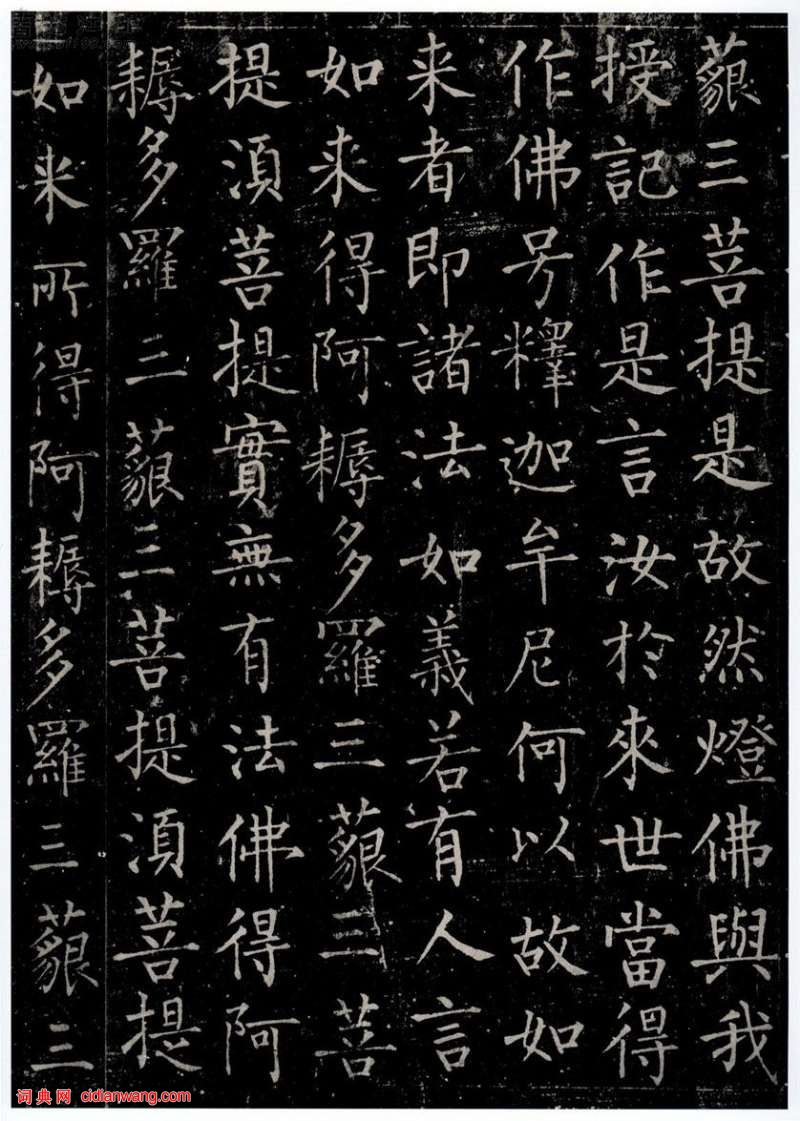 藐三菩提是故然燈佛與我
授記作是言汝於來世當得
作佛号釋迦牟尼何以故如
来者即諸法如義若有人言
如来得阿耨多羅三藐三菩
提湏菩提實無有法佛得阿
耨多羅三藐三菩提湏菩提
如来所得阿耨多羅三藐三
词典网 cidianwang.com